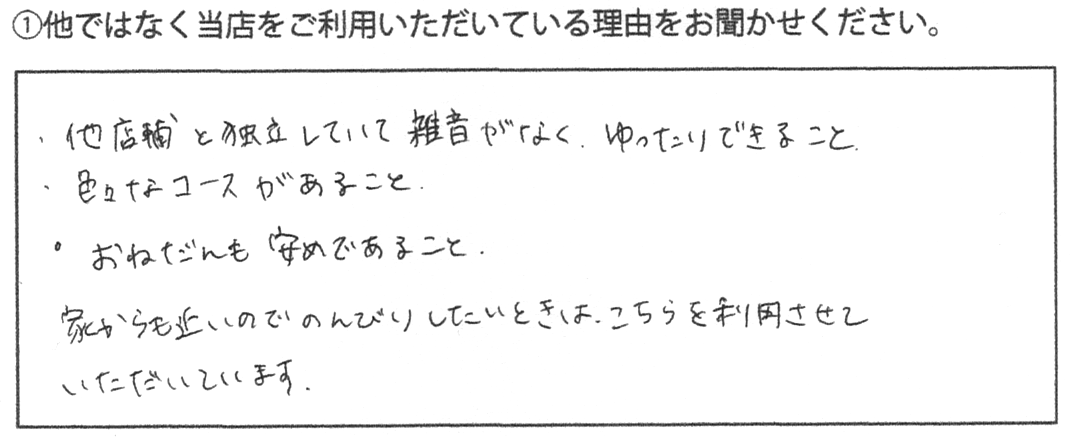 ①他ではなく当店をご利用いただいている理由をお聞かせください。
・他店舗と独立していて雑音がなく、ゆったりできること。
・色々なコースがあること。
・おねだんも安めであること。
家からも近いのでのんびりしたいときは、こちらを利用させて
いただいています。